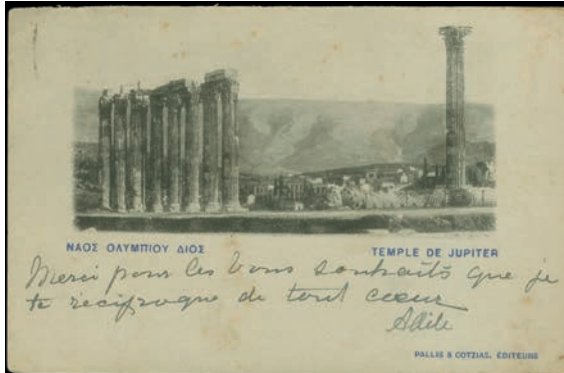 ΝΑΟΣ ΟΛΥΜΠΙΟΥ ΔΙΟΣ
TEMPLE DE JUPITER
Merci pour les bons souhaits que je
te reciproque de tout coeur
Adèle
PALLIS & COTZIAS, ÉDITEURS